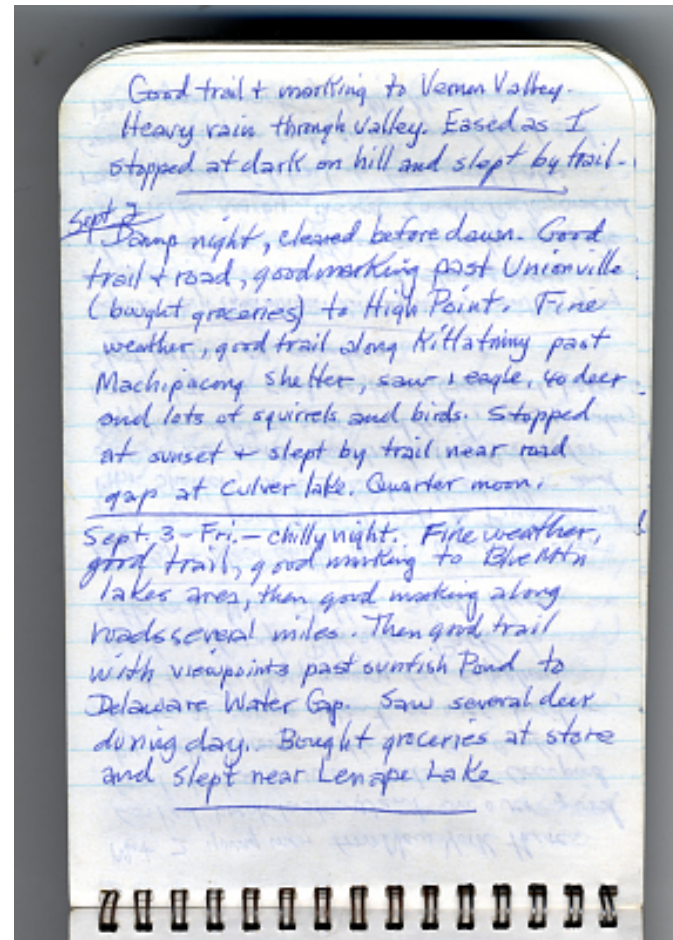 Good trail + marking to Vernon Valley.
Heavy rain through valley. Eased as I
stopped at dark on hill and slept by trail.
Sept 2
Damp night, cleared before dawn. Good
trail + road, good marking past Unionville
(bought groceries) to High Point. Fine
weather, good trail along Kittatinny past
Machipacong Shelter, saw 1 eagle, 40 deer
and lots of squirrels and birds. Stopped
at sunset + slept by trail near road
gap at Culver lake. Quarter moon.
Sept. 3 - Fri. - chilly night. Fine weather,
good trail, good marking to Blue Mtn
lakes area, then good marking along
roads several miles. Then good trail
with viewpoints past sunfish Pond to
Delaware Water Gap. Saw several deer
during day. Bought groceries at store
and slept near Lenape Lake